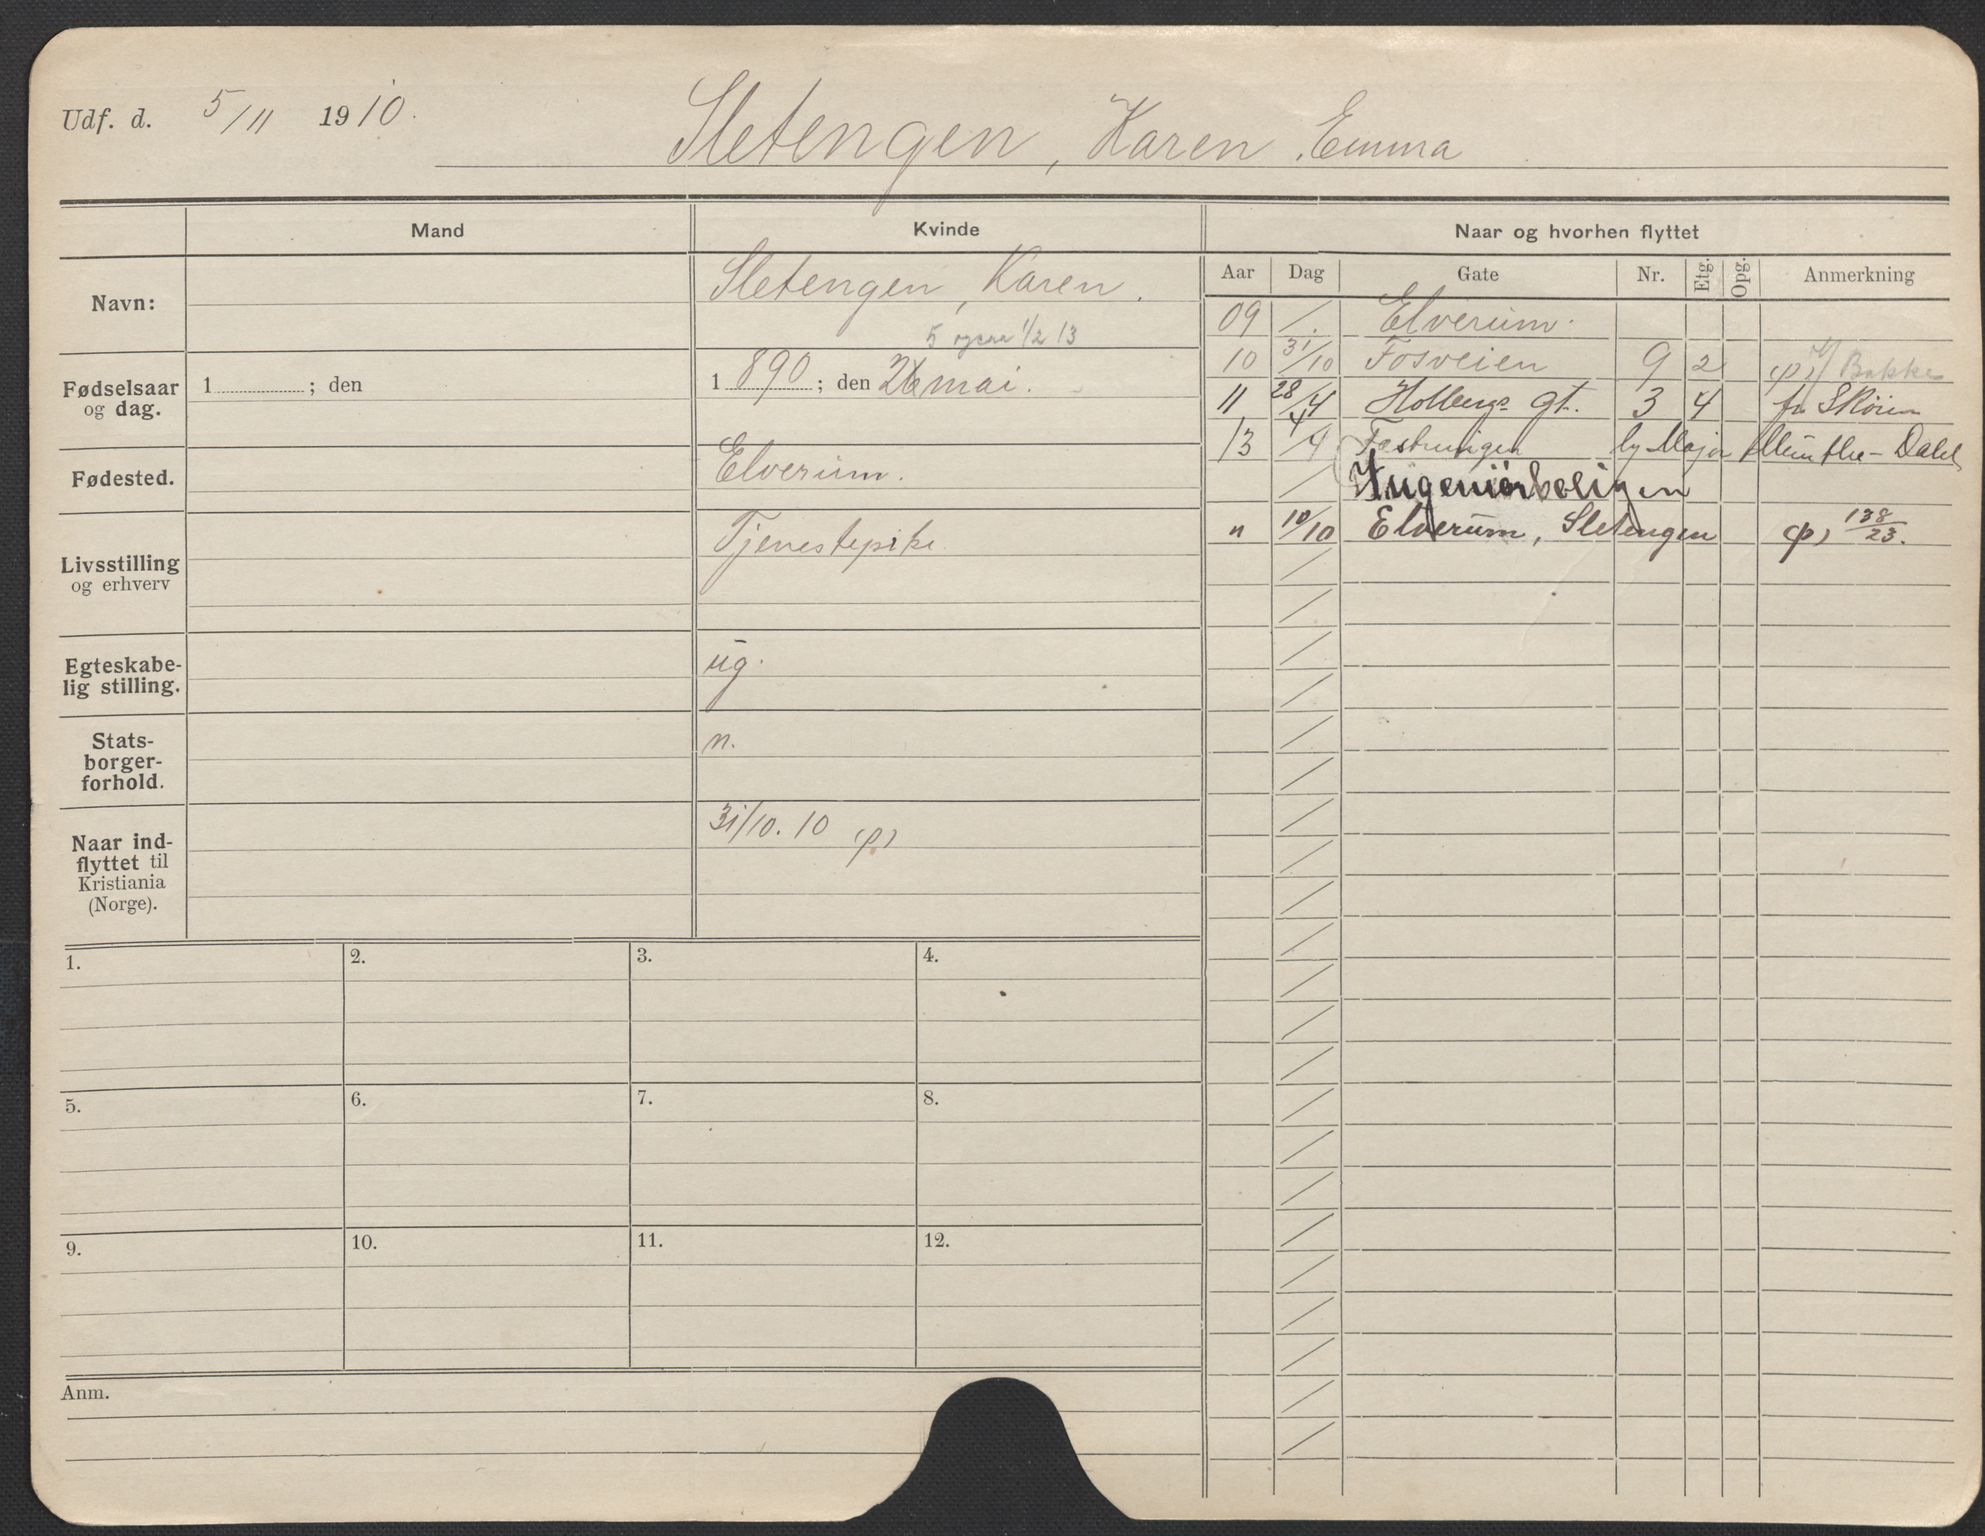 Udf. d. 5/11 1910.
Sletengen, Karen Emma
Mand Kvinde Naar og hvorhen flyttet
Aar Dag Gate Nr. Etg. Opg. Anmerkning
Navn: Sletengen, Karen.
1/2 13
Fødselsaar og dag. 1 ; den 1 890 ; den 26 mai.
Fødested. Elverum.
Livsstilling og erhverv Tjenestepike
Egteskabe-
lig stilling. ug.
Stats-
borger-
forhold. n.
Naar ind-
flyttet til
Kristiania
(Norge). 31/10. 10 (p)
09 / Elverum.
10 31/10 Fosveien 9 2 (p) Bakke
11 28/4 Holbergs gt. 3 4 fr Skøien
13 4/4 Fæstningen Major Munthe-Dahl
/ Ingeniørboligen
" 10/10 Elverum, Sletengen (p) 138/23.
1. 2. 3. 4.
5. 6. 7. 8.
9. 10. 11. 12.
Anm.